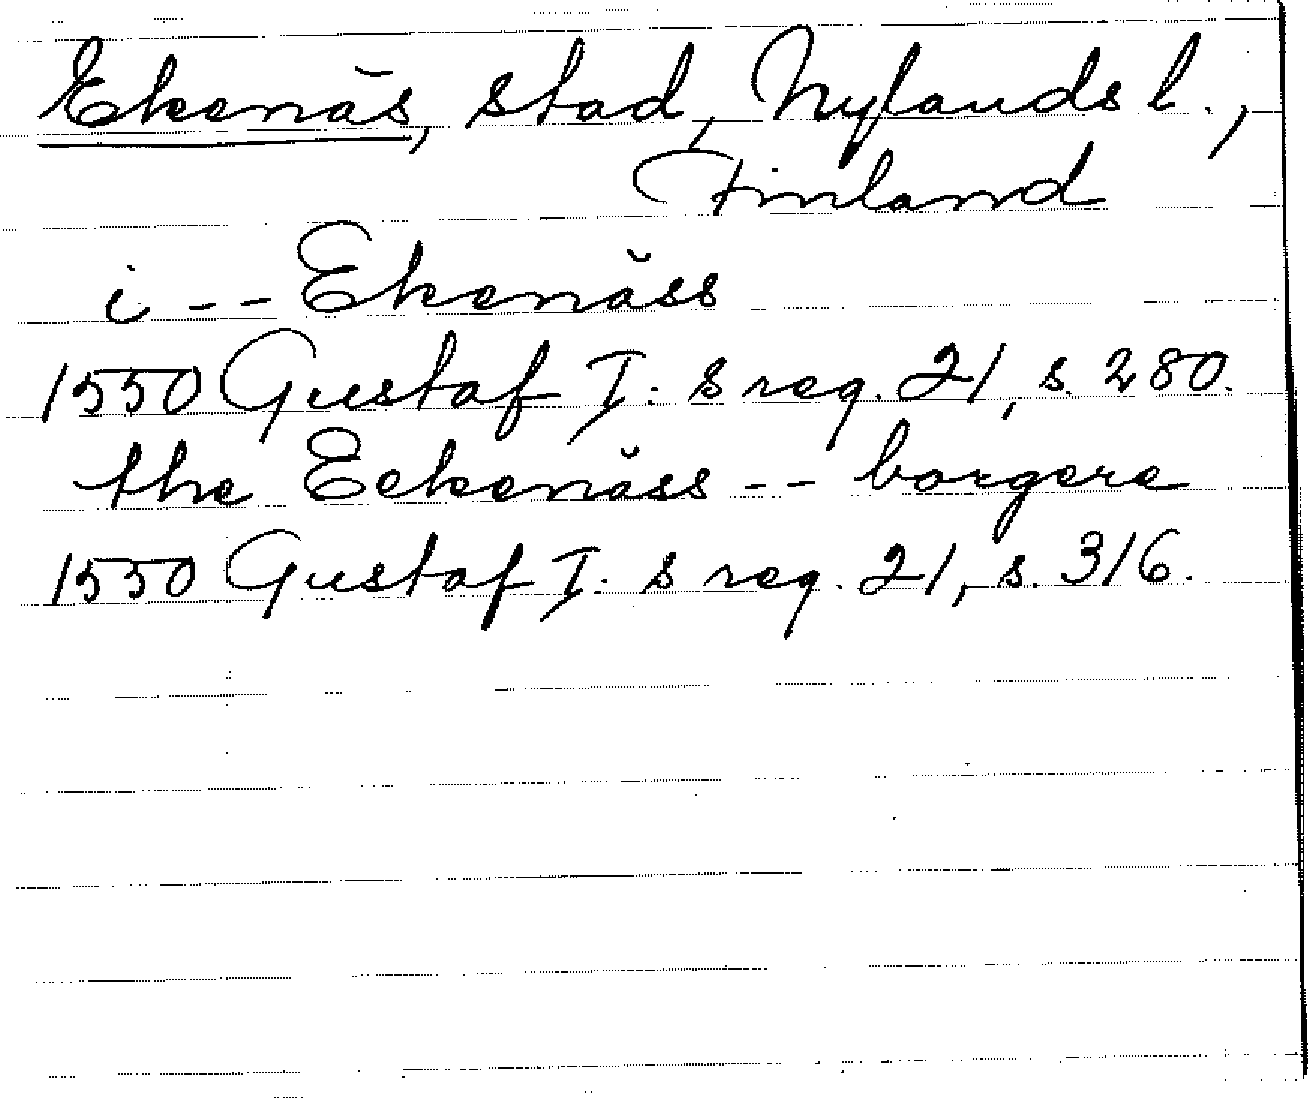 Ekenäs, stad, Nylands l.,
Finland
i -- Ekenäss
1550 Gustaf I:s reg. 21, s. 280.
the Eekenäss -- borgere
1550 Gustaf I:s reg. 21, s. 316.